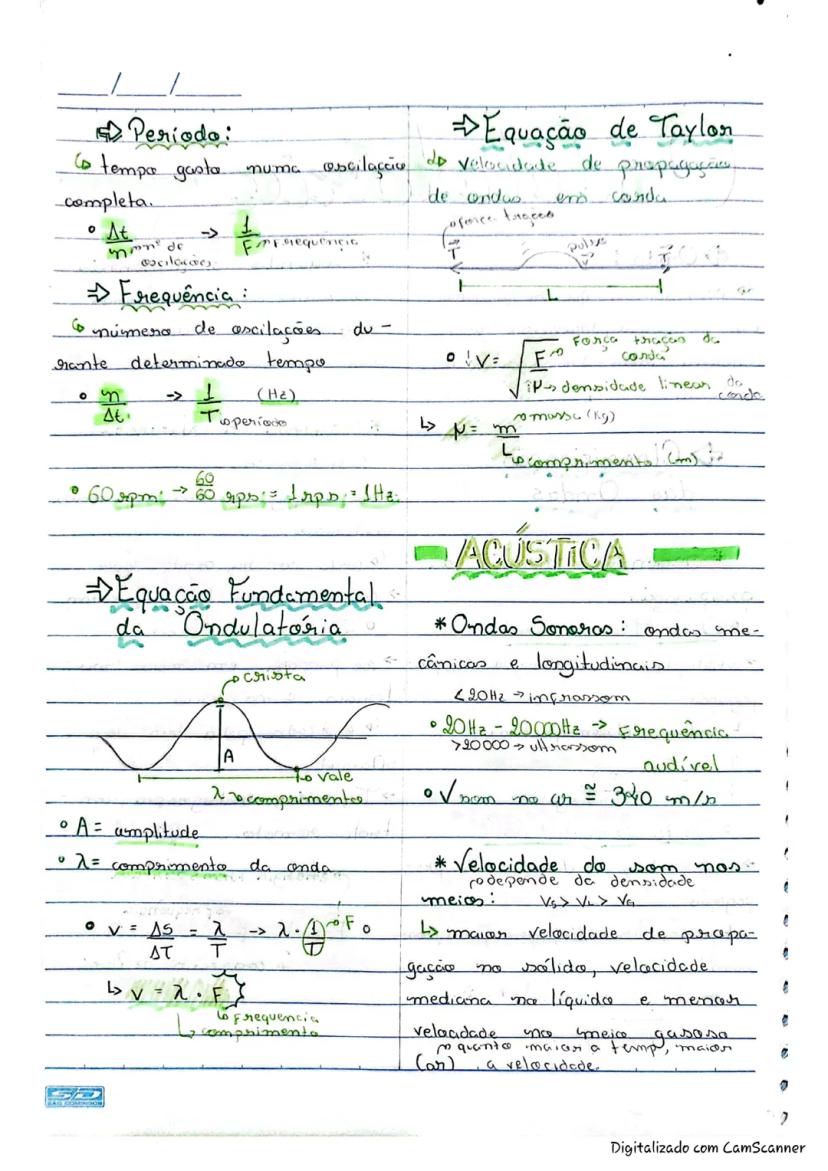 ___/___/___
⇒ Período:
↳ tempo gasto numa oscilação
completa.
• Δt/n → nº de oscilações → 1/F → frequência
⇒ Frequência:
↳ número de oscilações du-
rante determinado tempo
• n/Δt → 1/T → período (Hz)
• 60 rpm → 60/60 rps = 1 rps = 1Hz
⇒ Equação Fundamental
da Ondulatória
crista
A
vale
λ → comprimento
• A = amplitude
• λ = comprimento da onda
• v = ΔS/ΔT = λ/T → λ · (1/T) → F
↳ v = λ · F
frequencia
comprimento
⇒ Equação de Taylor
↳ velocidade de propagação
de ondas em corda
força tração
T pulso T
L
• V = √F/μ
Força tração da
corda
densidade linear da
corda
↳ μ = m/L
massa (Kg)
comprimento (m)
ACÚSTICA
* Ondas Sonoras: ondas me-
cânicas e longitudinais
<20Hz → infrassom
• 20Hz - 20000Hz → Frequência
>20000 → ultrassom
audível
• V som no ar ≅ 340 m/s
* Velocidade do som nos
depende da densidade
meios: Vs > VL > VG
↳ maior velocidade de propa-
gação no sólido, velocidade
mediana no líquido e menor
velocidade no meio gasoso
quanto maior a temp, maior
(ar) a velocidade.
SD
SÃO DOMINGOS
Digitalizado com CamScanner